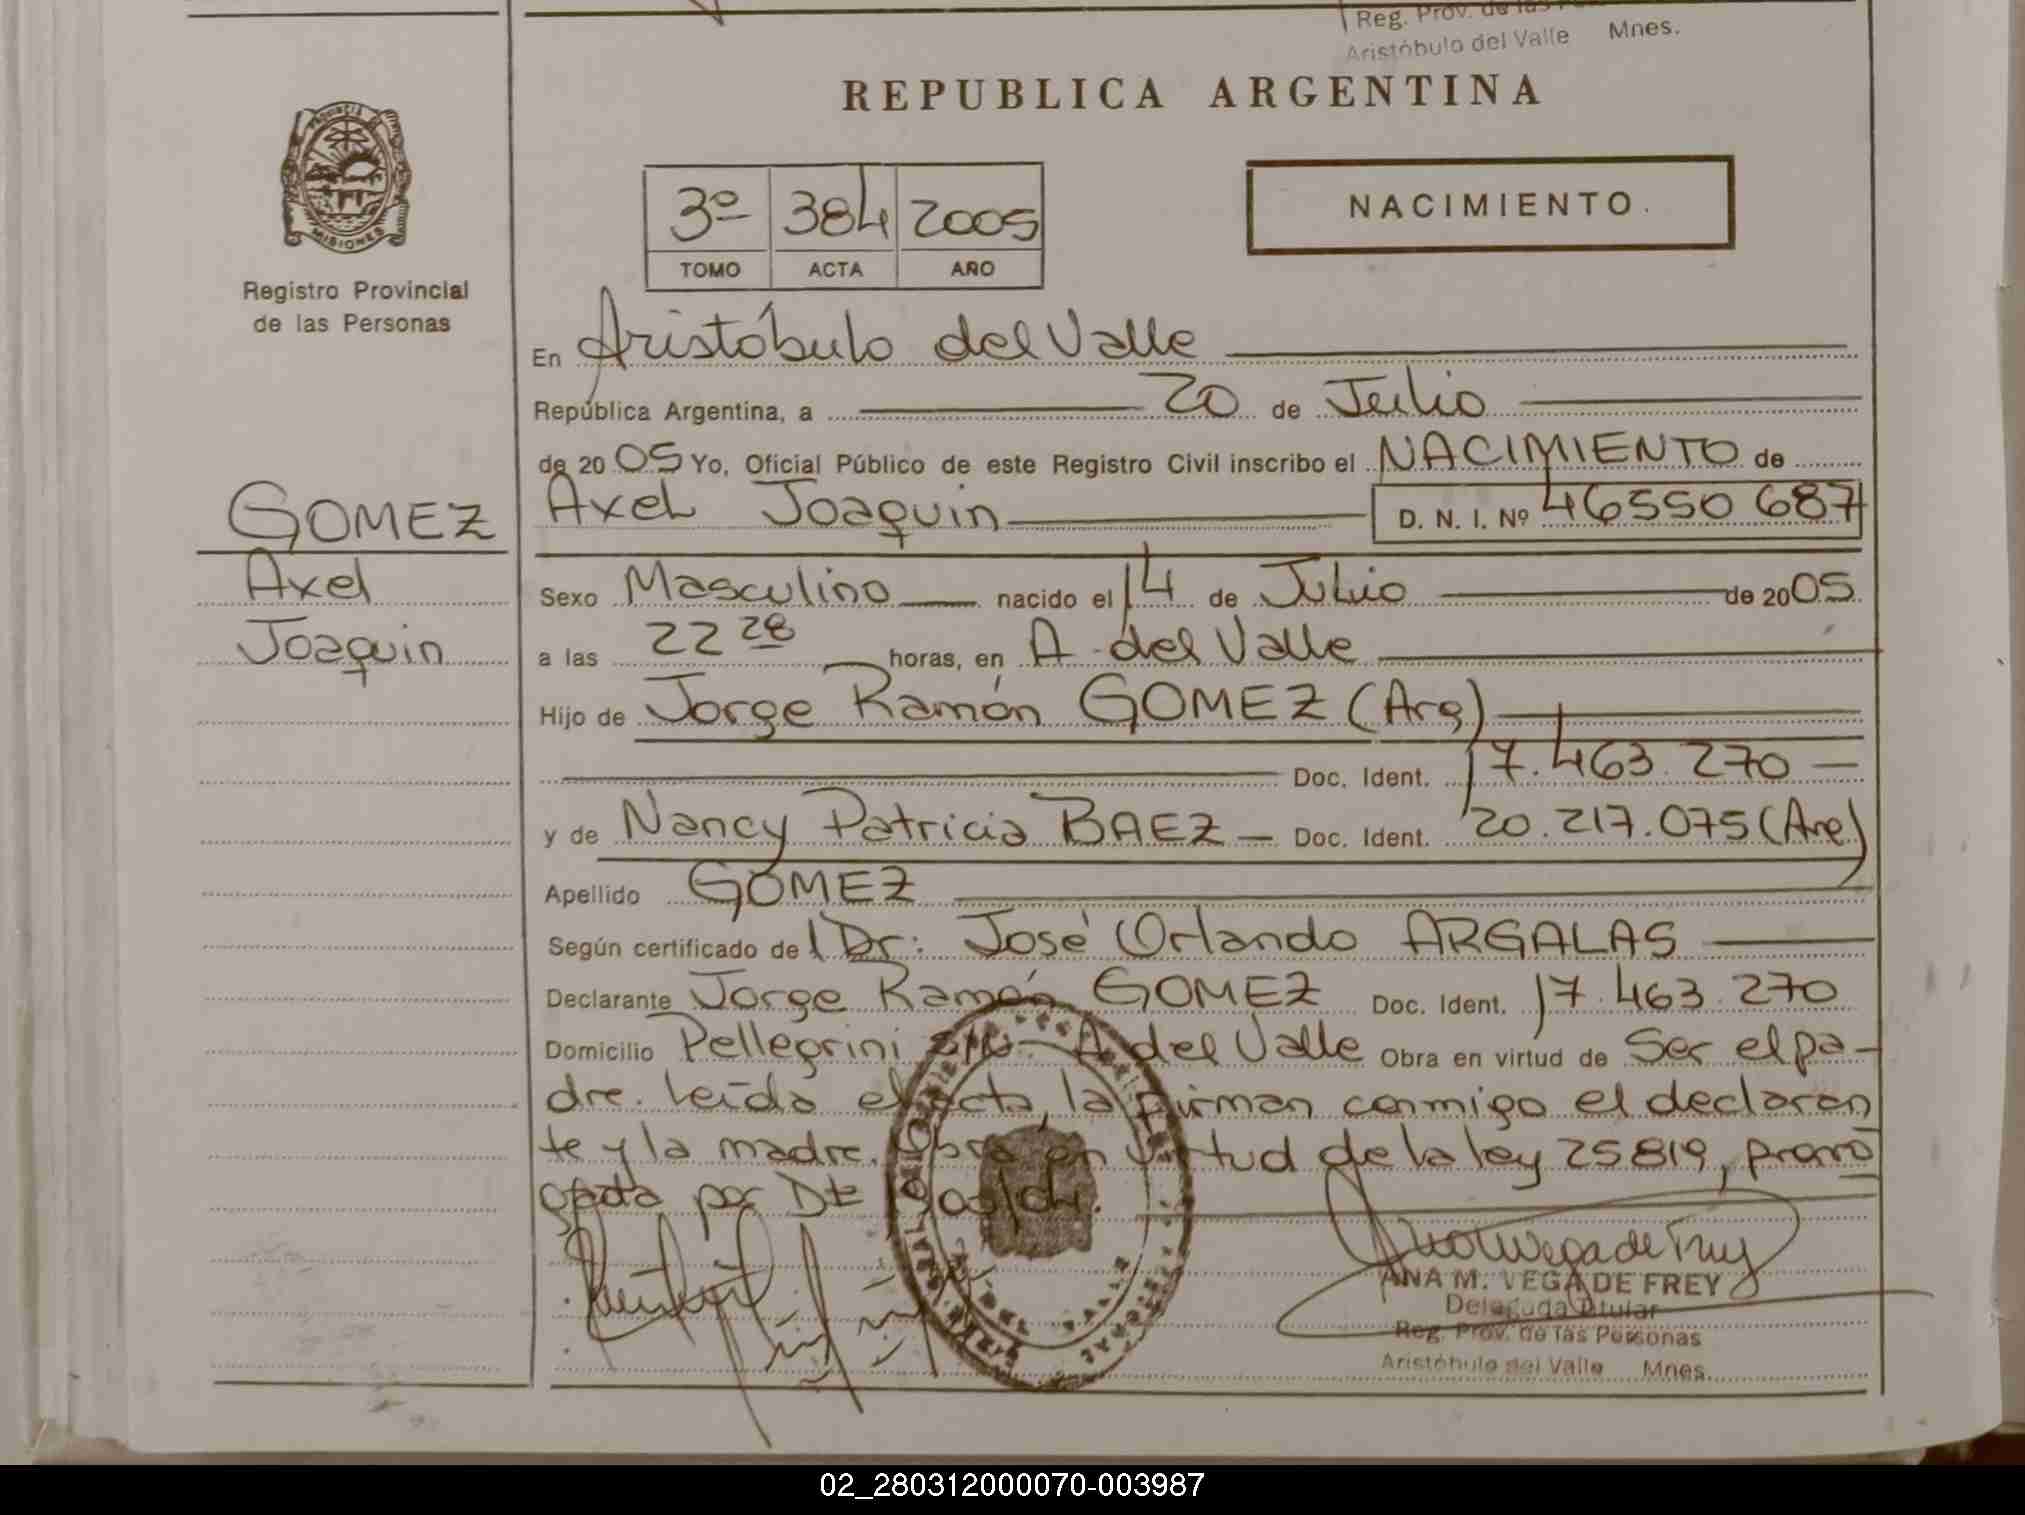 Reg. Prov. de las
Aristóbulo del Valle Mnes.
REPUBLICA ARGENTINA
PROVINCIA
MISIONES
3º 384 2005
TOMO ACTA AÑO
NACIMIENTO
Registro Provincial
de las Personas
En Aristóbulo del Valle
República Argentina, a 20 de Julio
de 2005 Yo, Oficial Público de este Registro Civil inscribo el NACIMIENTO de
GOMEZ Axel Joaquin D. N. I. Nº 46550 687
Axel
Sexo Masculino nacido el 14 de Julio de 2005
Joaquin
a las 22 28 horas, en A del Valle
Hijo de Jorge Ramón GOMEZ (Arg)
Doc. Ident. 17.463.270
y de Nancy Patricia BAEZ - Doc. Ident. 20.217.075 (Arg.)
Apellido GOMEZ
Según certificado del Dr: José Orlando ARGALAS
Declarante Jorge Ramón GOMEZ Doc. Ident. 17.463.270
Domicilio Pellegrini A del Valle Obra en virtud de Ser el pa-
dre. Leída el acta, la firman conmigo el declaran
te y la madre. Obra en virtud de la ley 25819, prorro
gada por Dt
ANA M. VEGA DE FREY
Delegada Titular
Reg. Prov. de las Personas
Aristóbulo del Valle Mnes.
02_280312000070-003987